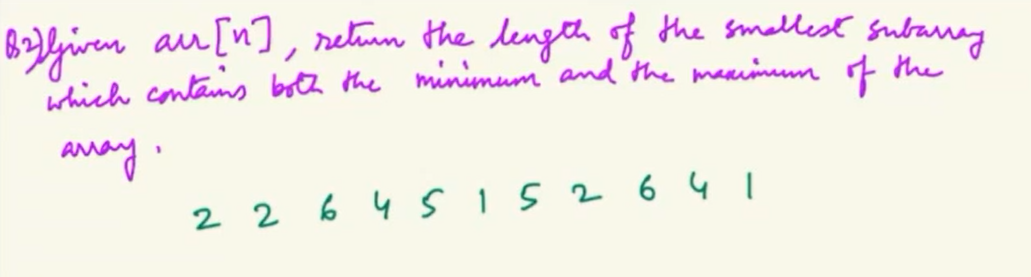 Q2) Given arr[n], return the length of the smallest subarray
which contains both the minimum and the maximum of the
array.
2 2 6 4 5 1 5 2 6 4 1